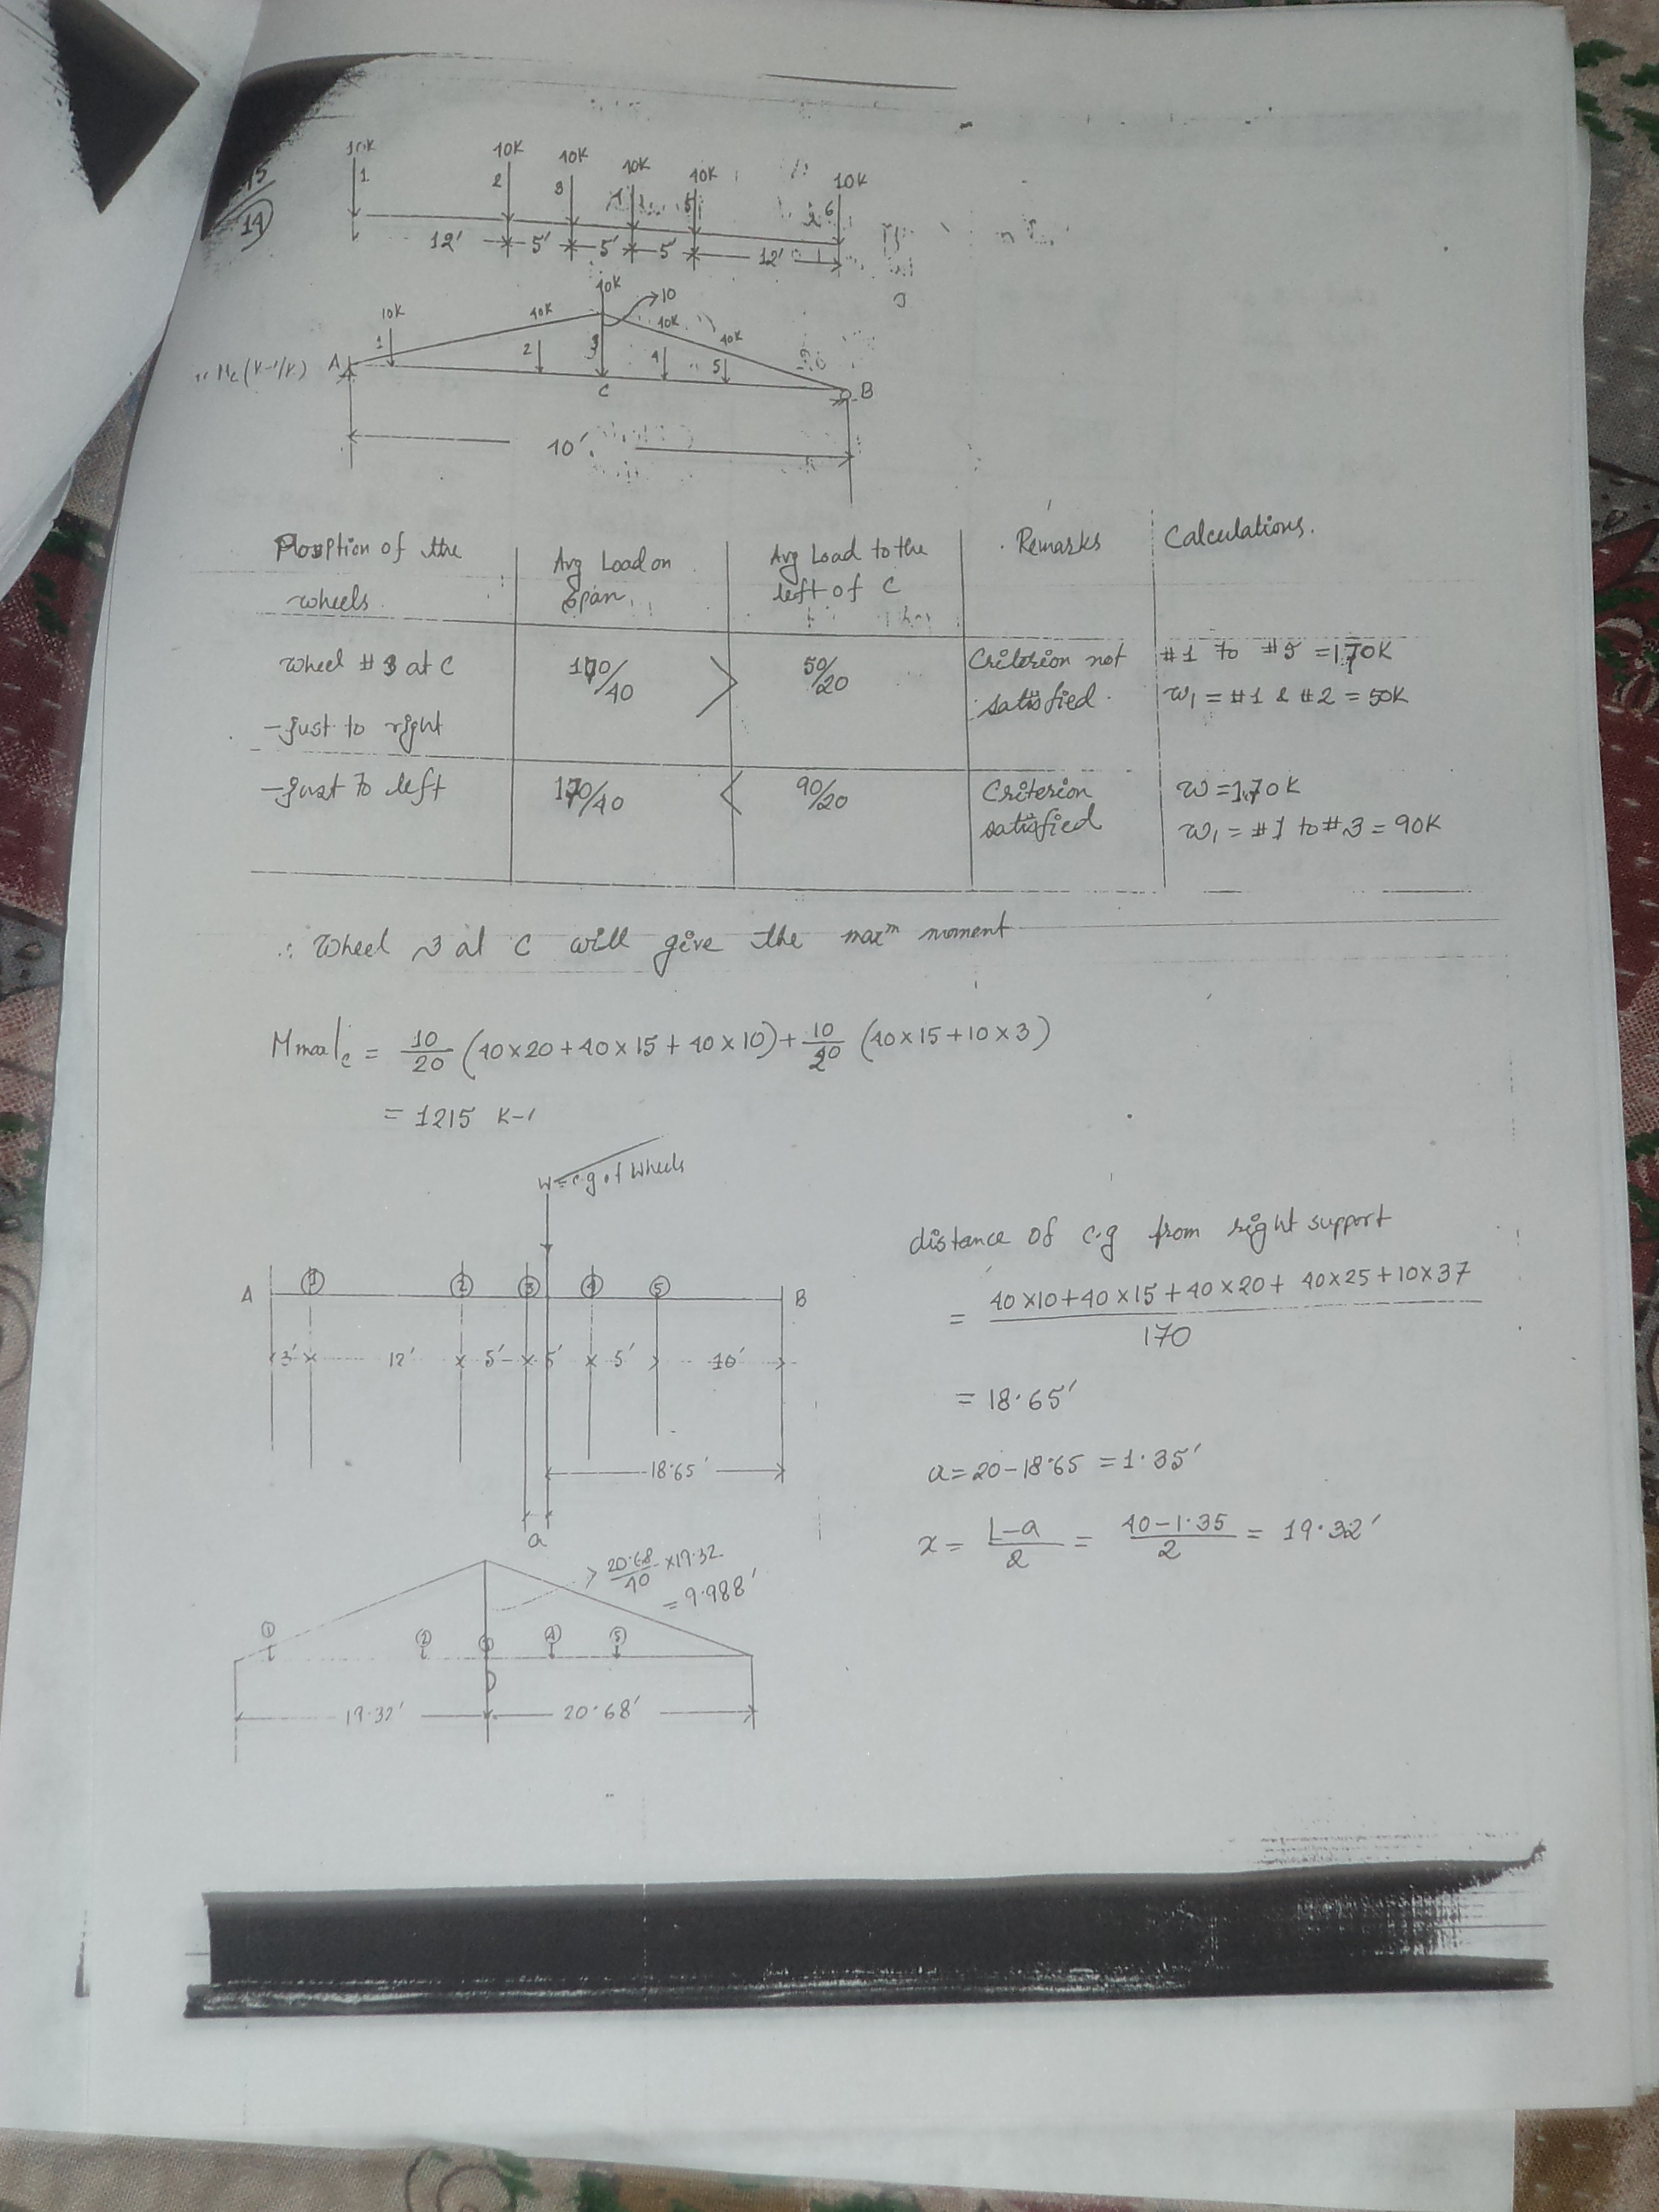 14
10K 10K 10K 10K 10K 10K
1 2 3 5 6
12' 5' 5' 5' 12'
10K 40K 40K 10 40K 40K
A 1 2 3 4 5 B
Mc (K-1/K)
C
10'
Position of the wheels. Avg Load on Span Avg Load to the left of C Remarks Calculations.
Wheel #3 at C
-Just to right 170/40 > 50/20 Criterion not satisfied. #1 to #5 = 170K
w1 = #1 & #2 = 50K
-Just to left 170/40 < 90/20 Criterion satisfied w = 170K
w1 = #1 to #3 = 90K
∴ Wheel 3 at C will give the maxm moment
Mmax|c = 10/20 (40×20+40×15+40×10)+10/20 (40×15+10×3)
= 1215 K-1
W=c.g of wheels
A 1 2 3 4 5 B
3' 12' 5' 5' 5' 10'
18.65'
a
distance of c.g from right support
= 40×10+40×15+40×20+40×25+10×37 / 170
= 18.65'
a=20-18.65 = 1.35'
x = L-a/2 = 40-1.35/2 = 19.32'
20.68/40 ×19.32
= 9.988'
1 2 3 4 5
19.32' 20.68'